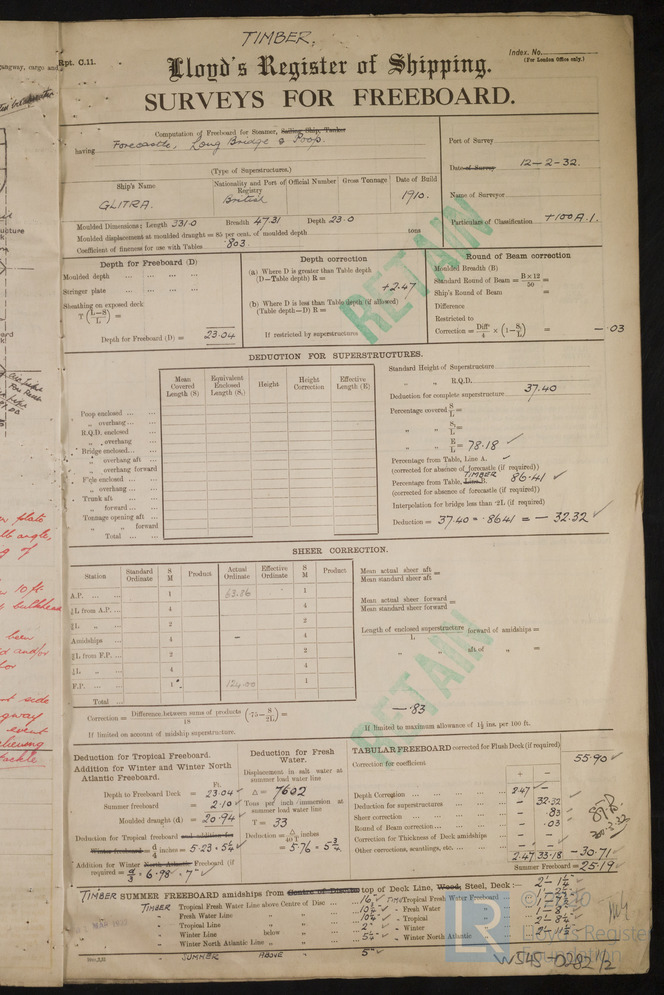 TIMBER.
Rpt. C.11.
Index. No.
(For London Office only.)
Lloyd's Register of Shipping.
SURVEYS FOR FREEBOARD.
Computation of Freeboard for Steamer, Sailing Ship, Tanker
having Forecastle, Long Bridge & Poop.
(Type of Superstructures.)
Port of Survey
Date of Survey 12-2-32.
Name of Surveyor
Particulars of Classification +100A.1.
Ship's Name
Nationality and Port of Registry
Official Number
Gross Tonnage
Date of Build
GLITRA.
British
1910.
Moulded Dimensions: Length 331.0 Breadth 47.31 Depth 23.0
Moulded displacement at moulded draught = 85 per cent. of moulded depth tons
Coefficient of fineness for use with Tables .803
Depth for Freeboard (D)
Moulded depth
Stringer plate
Sheathing on exposed deck
T (L-S/L) =
Depth for Freeboard (D) = 23.04
Depth correction
(a) Where D is greater than Table depth
(D—Table depth) R =
+2.47
(b) Where D is less than Table depth (if allowed)
(Table depth—D) R =
If restricted by superstructures
Round of Beam correction
Moulded Breadth (B)
Standard Round of Beam = B×12/50 =
Ship's Round of Beam =
Difference
Restricted to
Correction = Diff/4 × (1-S/L) = -.03
RETAIN
DEDUCTION FOR SUPERSTRUCTURES.
Mean Covered Length (S)
Equivalent Enclosed Length (S1)
Height
Height Correction
Effective Length (E)
Poop enclosed
„ overhang
R.Q.D. enclosed
„ overhang
Bridge enclosed
„ overhang aft
„ overhang forward
F'cle enclosed
„ overhang
Trunk aft
„ forward
Tonnage opening aft
„ „ forward
Total
Standard Height of Superstructure
„ „ R.Q.D.
Deduction for complete superstructure 37.40
Percentage covered S/L =
„ „ S1/L =
„ „ E/L = 78.18 ✓
Percentage from Table, Line A.
(corrected for absence of forecastle (if required))
TIMBER
Percentage from Table, Line B. 86.41 ✓
(corrected for absence of forecastle (if required))
Interpolation for bridge less than .2L (if required)
Deduction = 37.40 × .8641 = -32.32 ✓
SHEER CORRECTION.
Station
Standard Ordinate
S M
Product
Actual Ordinate
Effective Ordinate
S M
Product
A.P. 1 63.86 1
⅙L from A.P. 4 4
⅓L „ 2 2
Amidships 4 - 4
⅓L from F.P. 2 2
⅙L „ 4 4
F.P. 1 124.00 1
Total
Mean actual sheer aft / Mean standard sheer aft =
Mean actual sheer forward / Mean standard sheer forward =
Length of enclosed superstructure / L forward of amidships =
„ „ aft of „ =
Correction = Difference between sums of products / 18 (.75 - S/2L) = -.83
If limited on account of midship superstructure.
If limited to maximum allowance of 1½ ins. per 100 ft.
RETAIN
Deduction for Tropical Freeboard.
Addition for Winter and Winter North Atlantic Freeboard.
Ft.
Depth to Freeboard Deck = 23.04 ✓
Summer freeboard = 2.10 ✓
Moulded draught (d) = 20.94 ✓
Deduction for Tropical freeboard and addition for
Winter freeboard = d/4 inches = 5.23 = 5¼ ✓
Addition for Winter North Atlantic Freeboard (if required) = d/3 = 6.98 = 7" ✓
Deduction for Fresh Water.
Displacement in salt water at summer load water line
Δ = 7602
Tons per inch immersion at summer load water line
T = 33
Deduction = Δ/40T inches
= 5.76 = 5¾
TABULAR FREEBOARD corrected for Flush Deck (if required) 55.90 ✓
Correction for coefficient
+ -
Depth Correction 2.47 -
Deduction for superstructures 32.32
Sheer correction .83
Round of Beam correction - .03
Correction for Thickness of Deck amidships - -
Other corrections, scantlings, etc. - -
2.47 33.18 -30.71 ✓
Summer Freeboard = 25.19 ✓
TIMBER SUMMER FREEBOARD amidships from Centre of Disc to top of Deck Line, Wood, Steel, Deck:- 2'-1¼"
TIMBER Tropical Fresh Water Line above Centre of Disc 16" ✓
Tropical Fresh Water Freeboard
„ Fresh Water Line „ „
„ Fresh Water
„ Tropical Line „ „ 10¼" ✓
„ Tropical
„ Winter Line below „ 2"
„ Winter 2'-8¼" ✓
„ Winter North Atlantic Line „ „ 5¼" ✓
„ Winter North Atlantic 2'-11½"
SUMMER ABOVE 5"
© 2020
LR
Lloyd's Register
Foundation
W545-0282 1/2